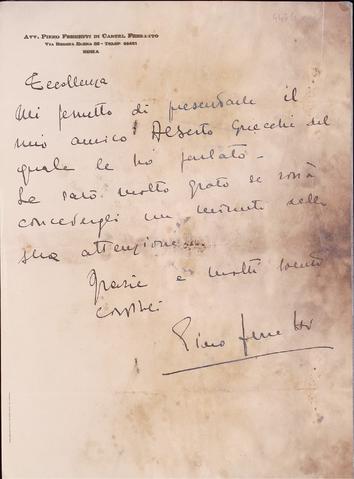 AVV. PIERO FERRETTI DI CASTEL FERRETTO
VIA REGINA ELENA 68 - TELEF.
ROMA
Eccellenza
Mi permetto di presentarle il
mio amico Alberto del
quale le ho parlato -
Le sarò molto grato se vorrà
concedergli un minuto della
sua attenzione
Grazie e molti
Piero Ferretti